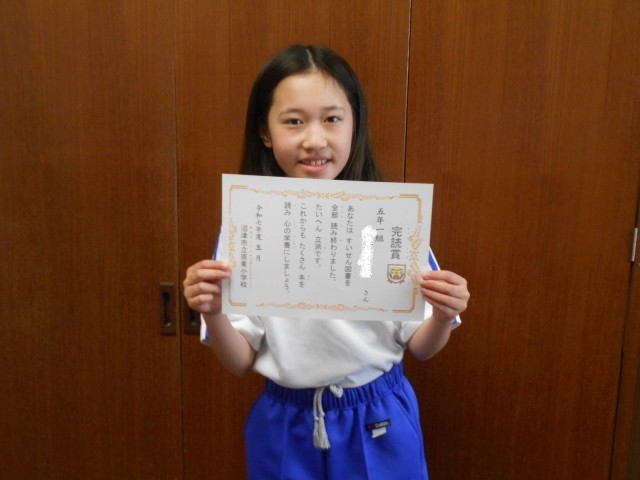 完読賞
五年一組
さん
あなたは すいせん図書を
全部 読み終わりました。
たいへん 立派です。
これからも たくさん 本を
読み 心の栄養にしましょう。
令和七年度 五月
沼津市立原東小学校